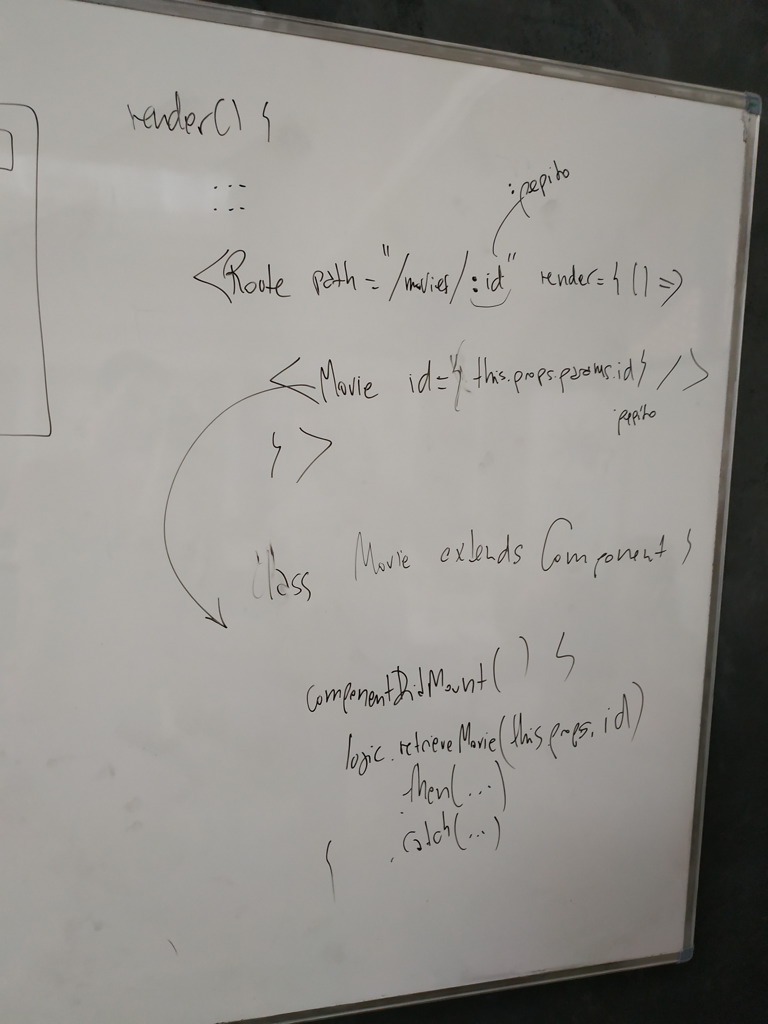 render() {
...
...
:pepito
<Route path="/movies/:id" render={ () =>
<Movie id={ this.props.params.id } />
pepito
} >
class Movie extends Component {
componentDidMount( ) {
logic.retrieveMovie(this.props.id)
.then(...)
.catch(...)
}